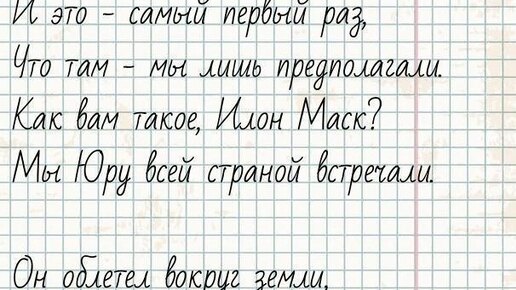 И это - самый первый раз,
Что там - мы лишь предполагали.
Как вам такое, Илон Маск?
Мы Юру всей страной встречали.
Он облетел вокруг земли,